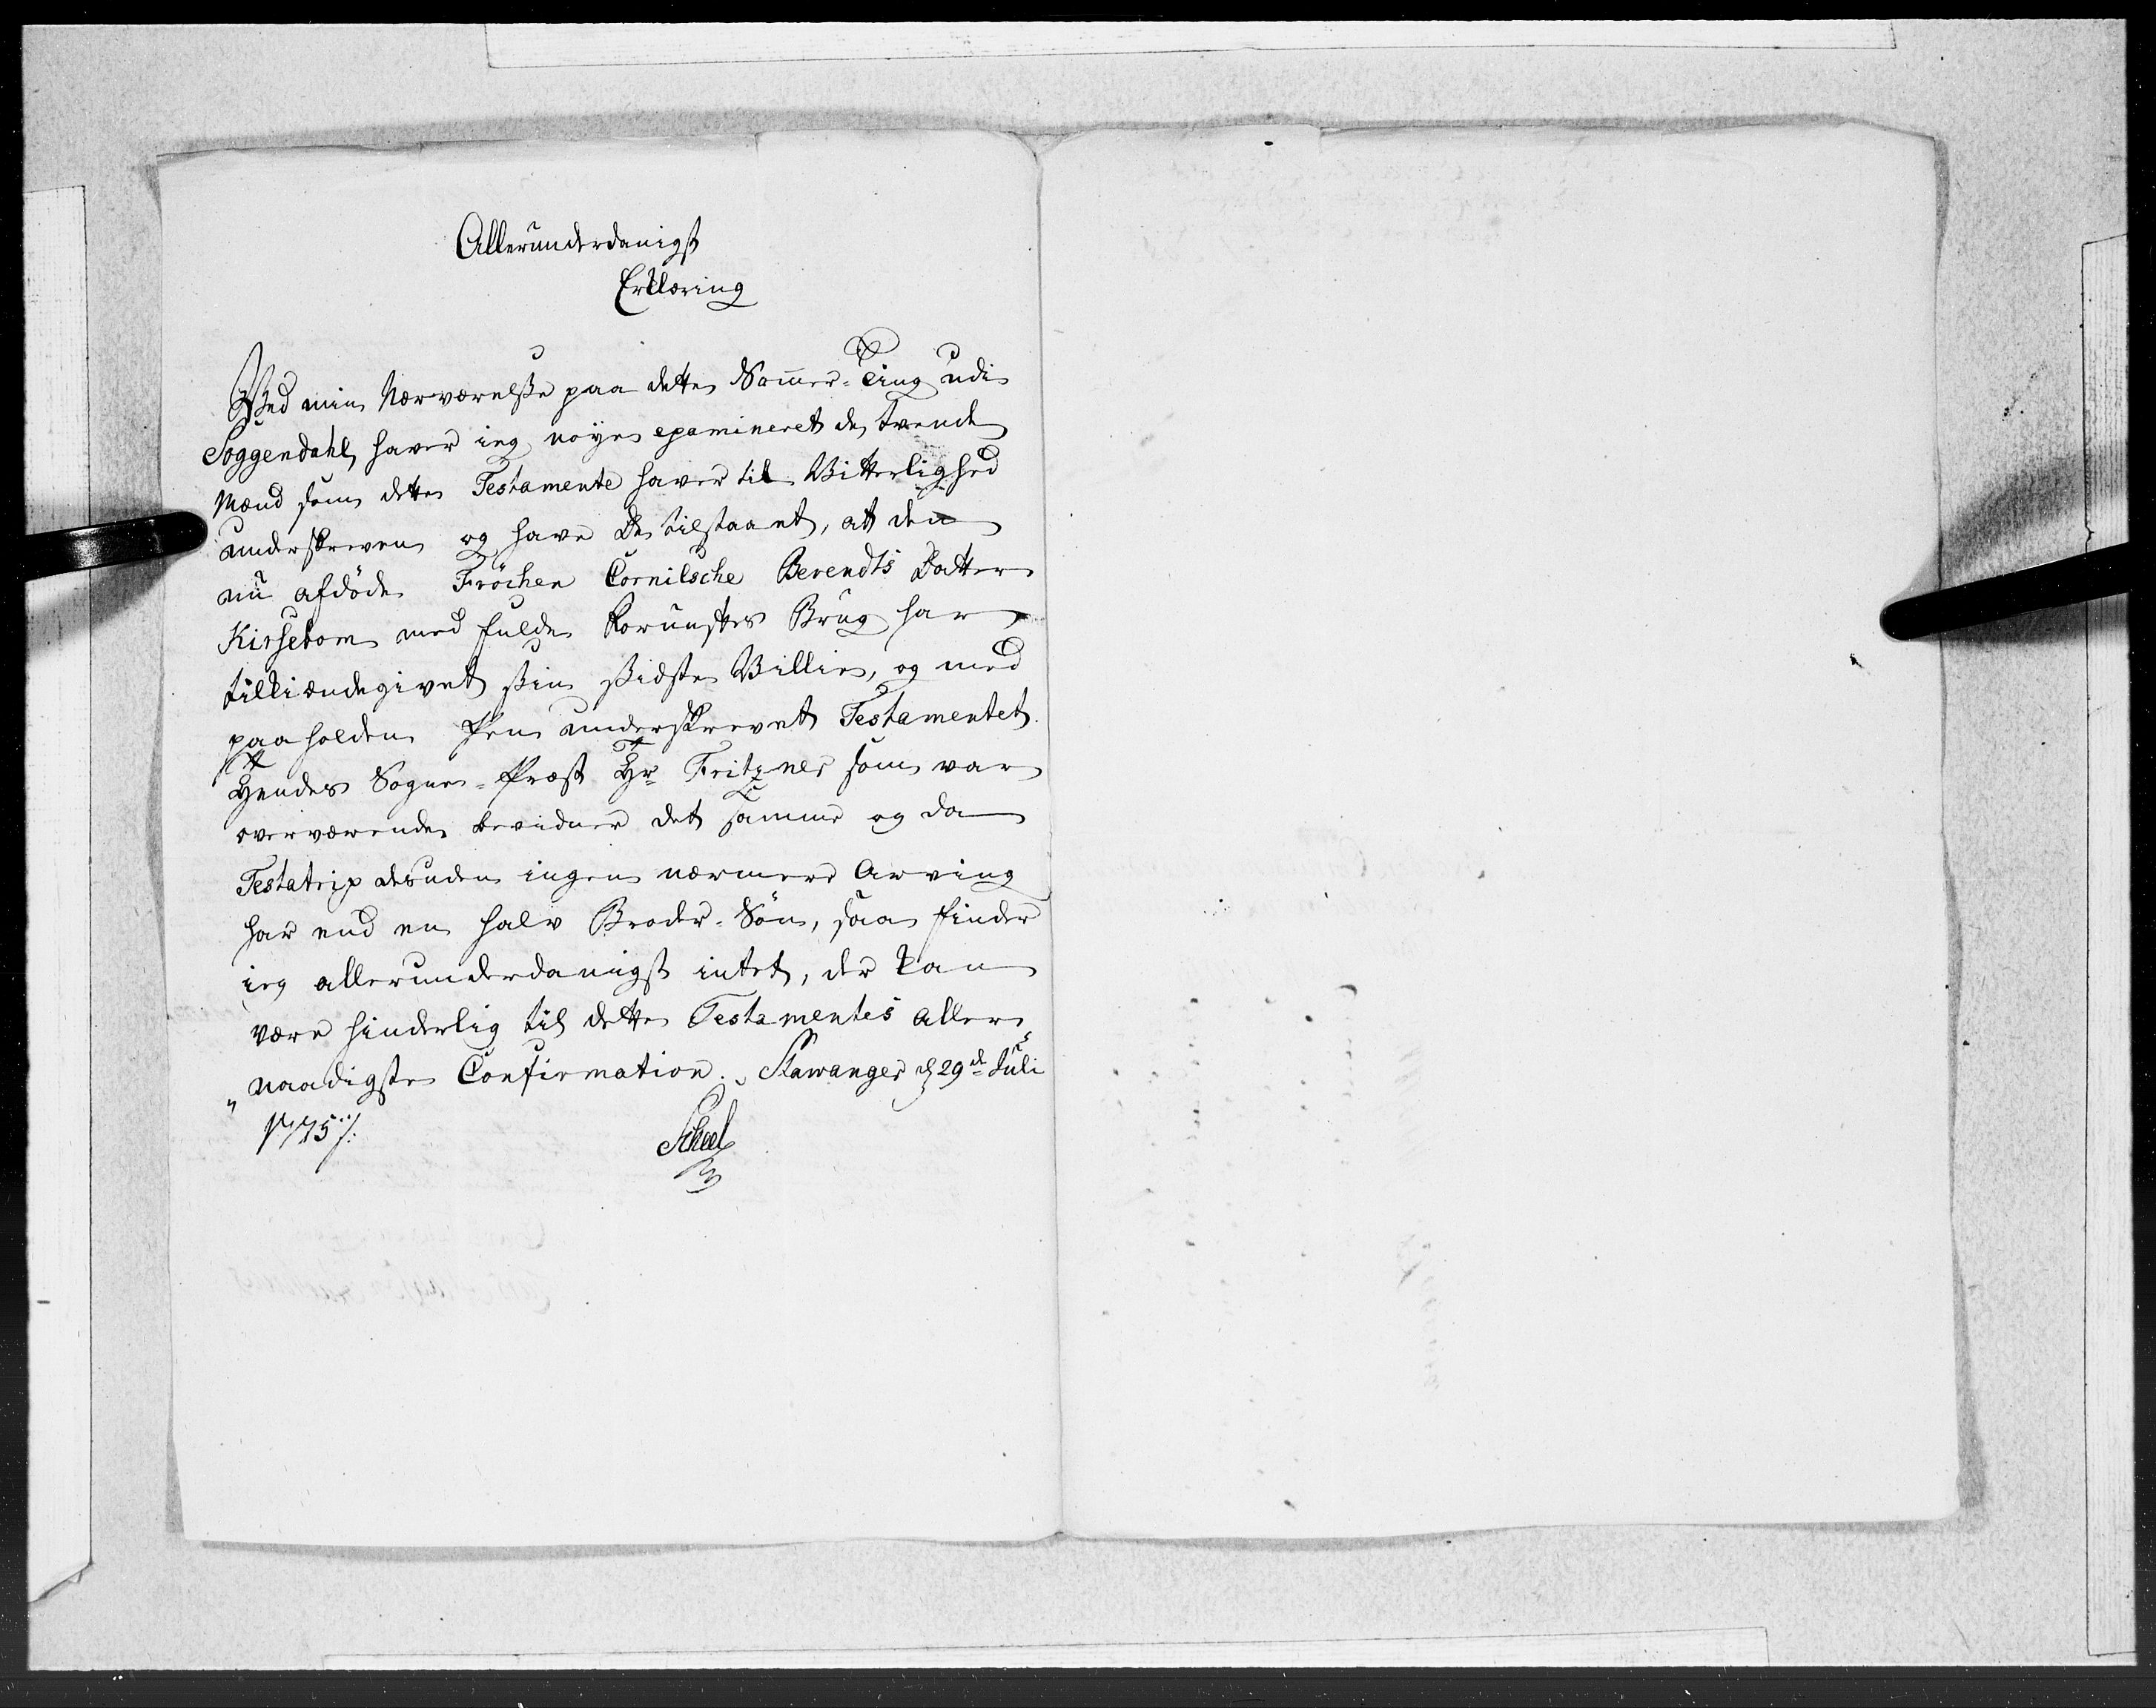 Allerunderdanigst
Erklæring
Ved min Nærværelse paa dette Som̄er-Ting udi
Soggendahl, haver ieg nøye examineret de tvende
Mænd som dette Testamente haver til Vitterlighed
underskreven og have de tilstaaet, at den
nu afdøde Fröchen Cornilsche Berendts Datter
Kirsebom med fulde Fornuftes Brug har
tilkiændegivet sin sidste Villie, og med
paaholden Pen underskrevet Testamentet.
Hendes Sogne-Præst Hr Fritzner som var
overværende bevidner det samme og da
Testatrix desuden ingen nærmere Arving
har end en halv Broder-Søn, saa finder
ieg allerunderdanigst intet, der kan
være hinderlig til dette Testamentes Aller
naadigste Confirmation. Stawanger d 29de Juli
1757.
Scheel